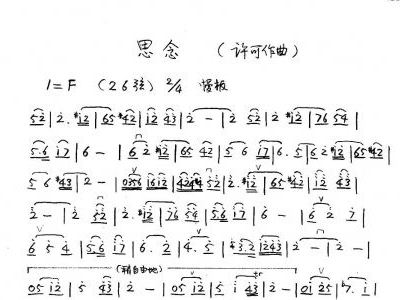 思念 （许可作曲）
1=F （26弦） 2/4 慢板
52|2. #12|65 #42|12 43|2 — |2 52|2 #12|76 54|
5.6 17|6 — |6 2 #12|65 42|5 6 17|6. 5|6 2 #12|65 #42|
5 6 #43|2 — |
2 — |2 52|2. #12|76 54|5.6 17|6 — |6 2 7|
6 5 4|5.6 17|6. 2|4. 5| 2 — |2 — |
（稍自由地）
05 12|5 43|2 — |05 12|5 1 43|2 — |01 25|7. 1|